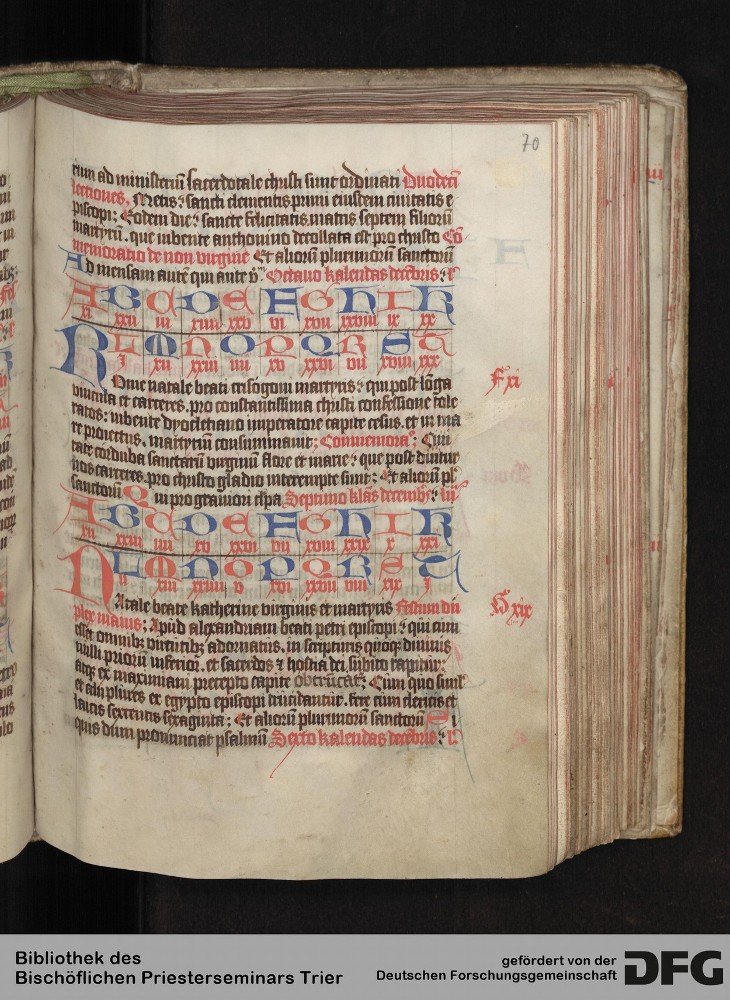 70
rium ad ministeriū sacerdotale christi sunt ordinati Duodeci
lectiones. Metis: sancti clementis primi eiusdem ciuitatis e
piscopi; Eodem die: sancte felicitatis matris septem filiorū
martyrū. que iubente anthonino decollata est pro christo Cō
memoratio de non virgine Et aliorū plurimorū sanctorū
Ad mensam autē qui ante ỹ. Octauo kalendas decēbris: l
A B C D E F G H I K
xi xxii iii xiiii xxv vi xvii xxviii ix xx
L M N O P Q R S T
i xii xxiii iiii xv xxvi vii xviii xxx
Rome natale beati crisogoni martyris: qui post lōga
vincula et carceres. pro constantissima christi confessione tole
ratos: iubente dyocletiano imperatore capite cesus. et in ma
re proiectus. martyriū consummauit; Conmemora°; Ciui
tate corduba sanctarū virginū flore et marie: que post diutur
nos carceres. pro christo gladio interempte sunt; Et aliorū pl
sanctorū Qui pro grauiori clpa Septimo klas decembr: iiii
F xi
A B C D E F G H I K
xii xxiii iiii xv xxvi vii xviii xxix x xxi
L M N O P Q R S T
ii xiii xxiiii v xvi xxvii viii xix i
Natale beate katherine virginis et martyris Festum du
plex maius; Apud alexandriam beati petri episcopi: qui cum
esset omnibꝫ virtutibꝫ adornatus. in scripturis quoqꝫ diuinis
nulli priorū inferior. et sacerdos ⁊ hostia dei. subito rapitur:
atqꝫ ex maximiani precepto capite obtrūcat'; Cum quo simul
et alii plures ex egypto episcopi trucidantur. fere cum clericis et
laicis sexcentis sexaginta; Et aliorū plurimorū sanctorū Si
quis dum pronunciat psalmū Sexto kalendas decēbris: l
G xix
Bibliothek des
Bischöflichen Priesterseminars Trier
gefördert von der
Deutschen Forschungsgemeinschaft
DFG